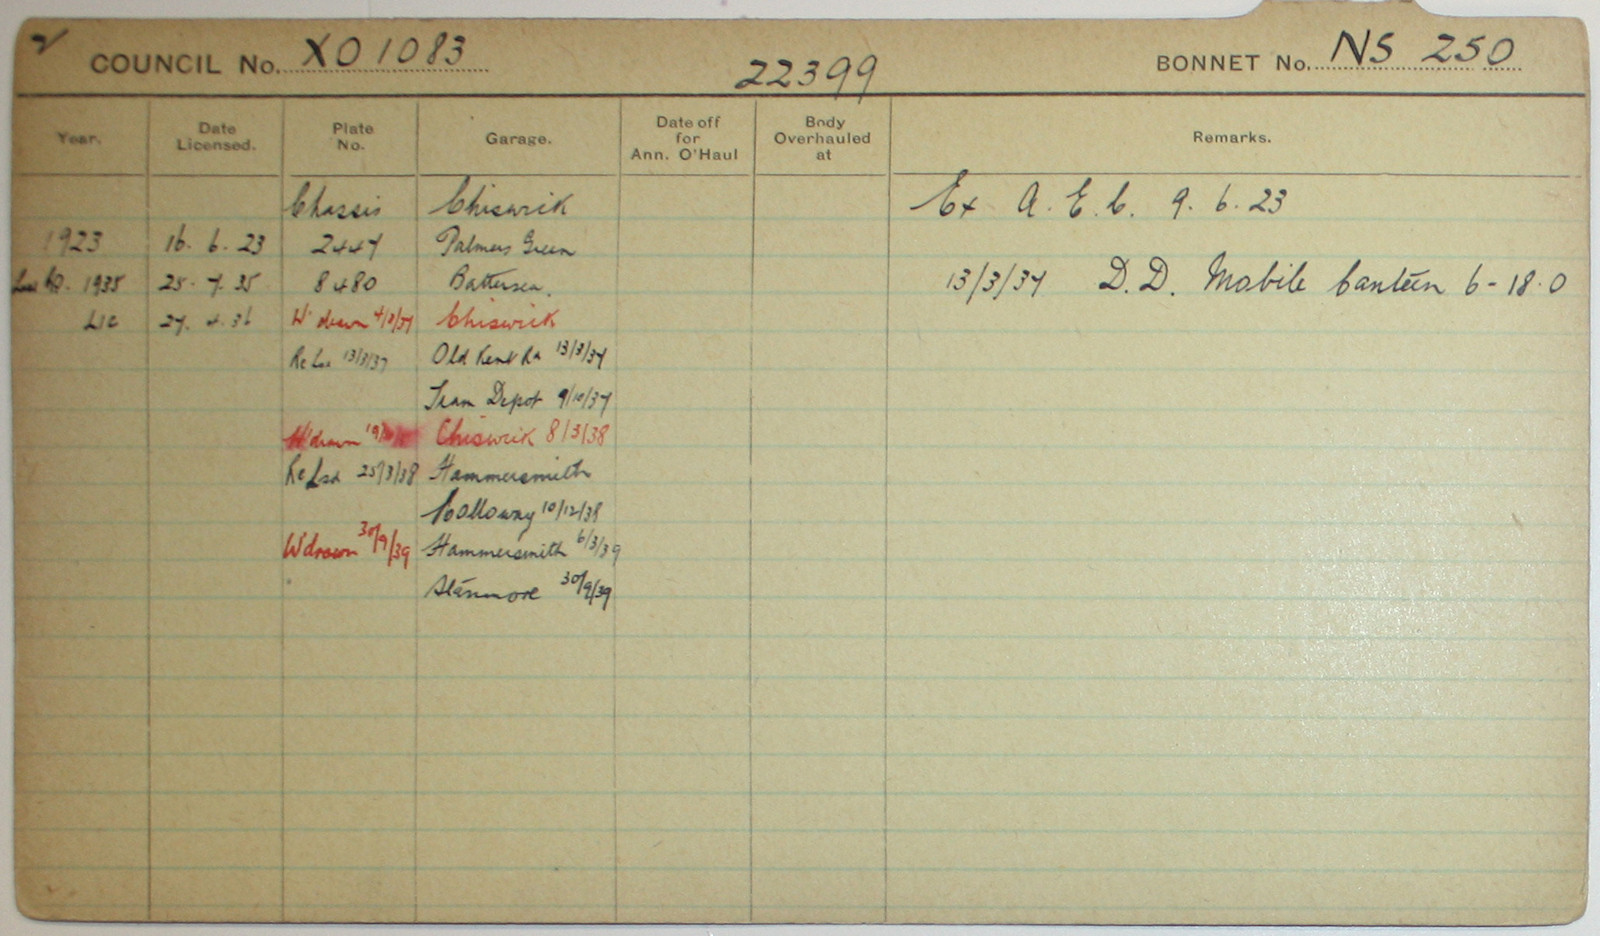 COUNCIL No. XO 1083 22399 BONNET No. NS 250
Year. Date Licensed. Plate No. Garage. Date off for Ann. O'Haul Body Overhauled at Remarks.
Chassis Chiswick Ex A.E.C. 9.6.23
1923 16.6.23 2447 Palmers Green
1935 25.7.35 8480 Battersea. 13/3/37 D.D. Mobile Canteen 6-18.0
Lic 27.4.36 W'drawn 4/3/37 Chiswick
ReLsd 13/3/37 Old Kent Rd 13/3/37
Tram Depot 9/10/37
W'drawn Chiswick 8/3/38
ReLsd 25/3/38 Hammersmith
Holloway 10/12/38
W'drawn 30/9/39 Hammersmith 6/3/39
Stanmore 30/9/39